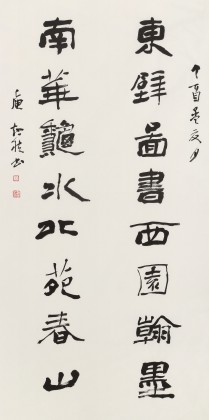 丁酉孟夏月
東壁啚書西園翰墨
南華龝水北苑春山